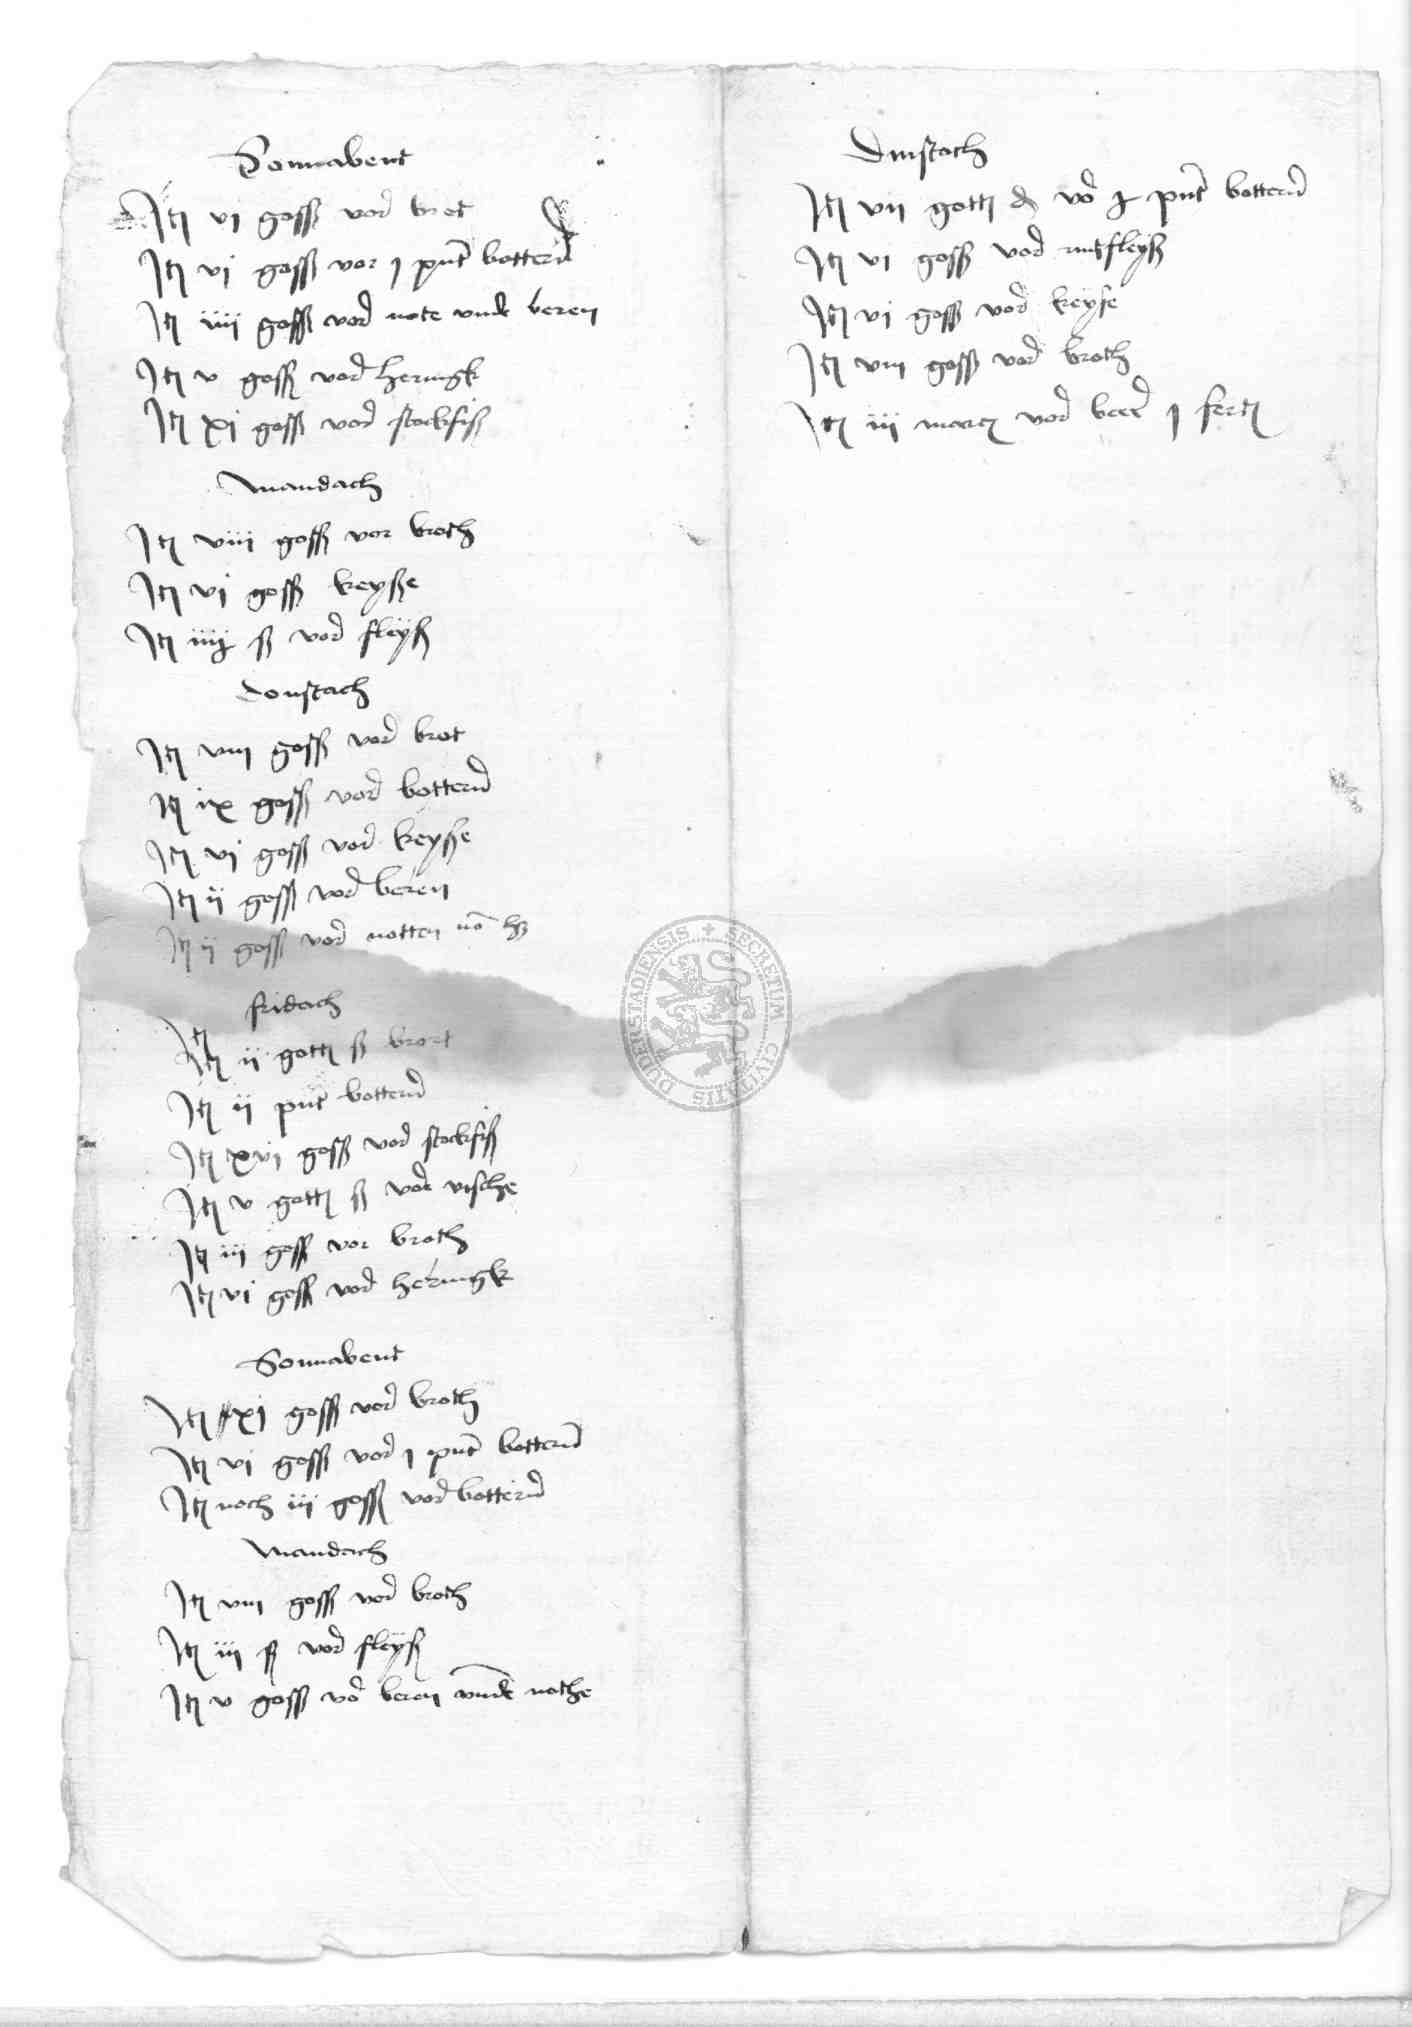 Sonnabent
Itm vi goss vord brot
Itm vi goss vor i punt botternn
Itm iiii goss vord note vnde beren
Itm v goss vord heringk
Itm xi goss vord stockfiß
Mandach
Itm viii goss vor broth
Itm vi goss keysze
Itm iiii ß vord fleyß
Donstach
Itm viii goss vord brot
Itm ix goss vord botternn
Itm vi goss vord keysze
Itm ii goss vord beren
Itm ii goss vord notten
fridach
Itm ii gott ß brort
Itm ii punt botternn
Itm xvi goss vord stockfiß
Itm v gott ß vor vische
Itm iii goss vor broth
Itm vi goss vord heringk
Sonnabent
Itm xi goss vord broth
Itm vi goss vord i punt botternn
Itm noch iii goss vord botternn
Mandach
Itm viii goss vord broth
Itm iii ß vord fleyß
Itm v goss vor beren vnde nothe
Dinstach
Itm vii gott vor punt botternn
Itm vi goss vord rintfleyß
Itm vi goss vord keyse
Itm viii goss vord broth
Itm iii marc vord beer i fert
SECRETUM CIVITATIS DUDERSTADIENSIS